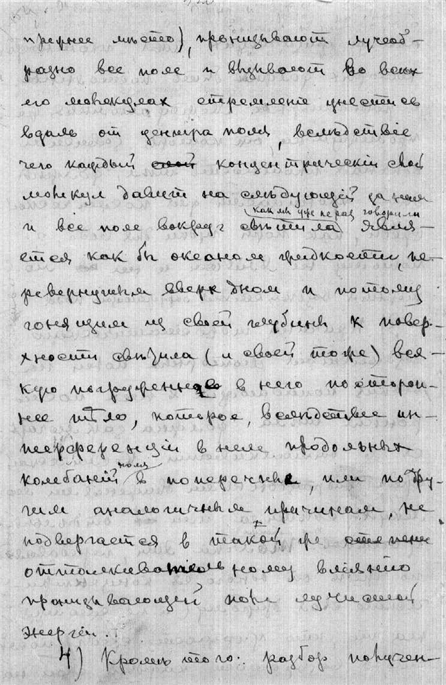 прежнее мѣсто), пронизываютъ лучеоб-
разно все поле и вызываютъ во всѣхъ
его молекулахъ стремленіе унестись
вдаль отъ центра поля, вслѣдствіе
чего каждый концентрическій слой
молекулъ давитъ на слѣдующій за нимъ
какъ мы уже не разъ говорили
и все поле вокругъ свѣтила явля-
ется какъ бы океаномъ жидкости, пе-
ревернутымъ вверхъ дномъ и потому
гонящимъ изъ своей глубины къ повер-
хности свѣтила (и своей тоже) вся-
кую погруженное въ него посторон-
нее тѣло, которое, вслѣдствіе ин-
терференціи въ немъ продольныхъ
колебаній поля въ поперечныя, или по дру-
гимъ аналогичнымъ причинамъ, не
подвергается въ такой же степени
отталкивательному вліянію
пронизывающей поле лучистой
энергіи.
4) Кромѣ того: разборъ получен-